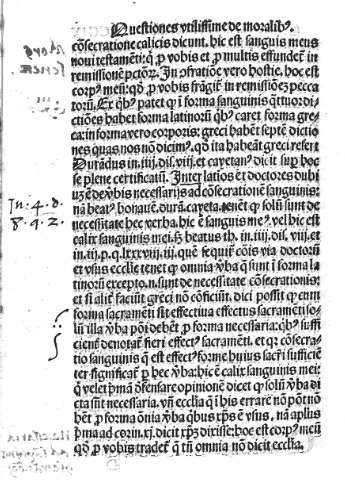 Questiones vtilissime de moralibꝰ.
cõsecratione calicis dicunt. hic est sanguis meus
noui testamẽti: q̃ ꝓ vobis et ꝓ multis effundet̃ in
remissionẽ pctõrꝫ. In ꝯfratiõe vero hostie, hoc est
corpꝰ meũ: qđ ꝓ vobis frãgit̃ in remissionẽ pecca
torũ. Et q̃bꝰ patet ꝙ ĩ forma sanguinis q̃ttuor di-
ctiões habet forma latinorũ q̃bꝰ caret forma gre-
ca: in forma vero corporis: greci habẽt septẽ dictio
nes quas nos nõ dicimꝰ. qđ ita habeãt greci refert
Durãdus in .iiij. dis. viij. et cayetanꝰ dicit sup̱ hoc
se plene certificatũ. Inter latios et doctores dubi
uꝫ ẽ de v̓bis necessarijs ad cõsecrationẽ sanguinis:
nã beatꝰ bonauẽ. durã. cayeta. tenẽt ꝙ solũ sunt de
necessitate hec verba. hic ẽ sanguis meꝰ. vel hic est
calix sanguinis mei. sꝫ beatus th. in .iiij. dis. viij. et
in .iij. p. q. lxxviij. iij. què sequit̃ cõis via doctorũ
et vsus ecclie tenet ꝙ omnia v̓ba q̃ sunt ĩ forma la
tinorũ excepto. n. sunt de necessitate cõsecrationis:
et si alit̃ faciũt greci nõ cõficiũt. dici possit ꝙ cum
forma sacramẽti sit effectiua effectus sacramẽti so-
lũ illa v̓ba põi debẽt ꝓ forma necessaria: q̃bꝰ suffi
cient̃ denotat̃ fieri effectꝰ sacramẽti. et qꝛ cõsecra-
tio sanguinis q̃ est effectꝰ forme huius sacr̃i sufficiẽ
ter significat̃ ꝑ hec v̓ba: hic ẽ calix sanguinis mei:
q̃ velet p̃mã defensare opinionẽ dicet ꝙ solũ v̓ba di
cta sũt necessaria. vñ ecclia q̃ ĩ his errare nõ põt nõ
hẽt ꝓ forma oĩa v̓ba q̃bus xp̃s ẽ vsus. nã apl̃us
p̃ma ad corin. xj. dicit xp̃ꝫ dixisse: hoc est corpꝰ meũ
qđ ꝓ vobis tradet̃ q̃ tñ omnia nõ dicit ecclia.
Jn: 4. d.
8. q. 2.